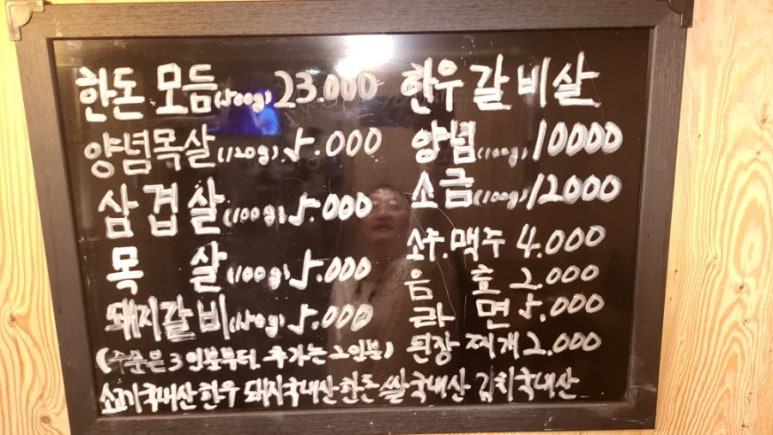 한돈 모듬(500g) 23.000
양념목살(120g) 5.000
삼겹살(100g) 5.000
목살(100g) 5.000
돼지갈비(150g) 5.000
(주문은 3인분부터, 추가는 2인분)
한우갈비살
양념(100g) 10000
소금(100g) 12000
소주.맥주 4.000
음료 2.000
라면 5.000
된장찌개 2.000
소고기국내산한우 돼지국내산한돈 쌀국내산 김치국내산